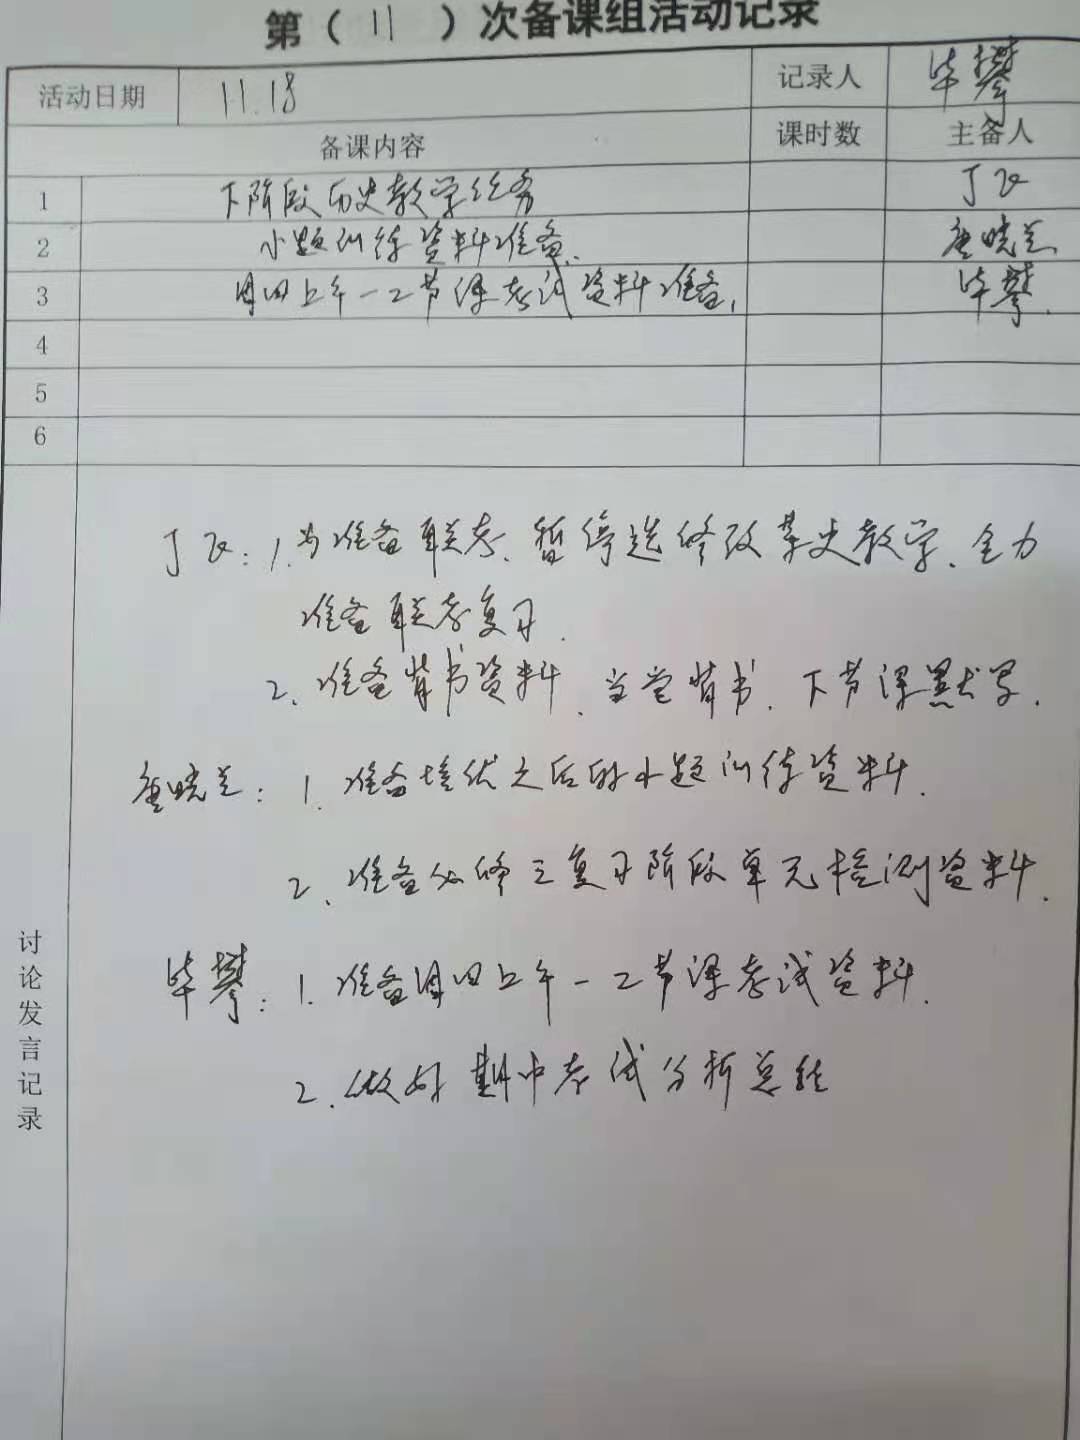 第（ 11 ）次备课组活动记录
活动日期 11.18 记录人 毕攀
备课内容 课时数 主备人
1 下阶段历史教学任务 丁飞
2 小题训练资料准备. 唐晓兰
3 周四上午一二节课考试资料准备, 毕攀.
4
5
6
丁飞: 1.为准备联考、暂停选修改革史教学、全力
准备联考复习.
2.准备背书资料、当堂背书、下节课默写.
唐晓兰: 1.准备培优之后的小题训练资料.
2.准备必修三复习阶段单元检测资料.
毕攀: 1.准备周四上午一二节课考试资料.
2.做好期中考试分析总结
讨论发言记录